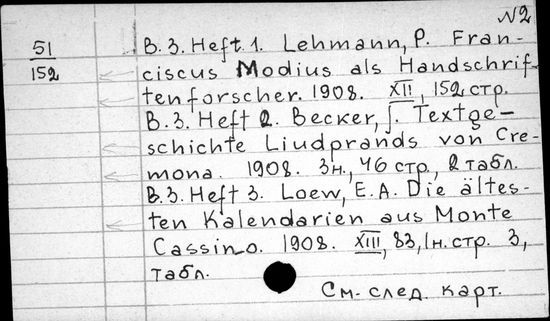 N2
51
152
B.3. Heft 1. Lehmann, P. Fran-
ciscus Modius als Handschrif-
tenforscher. 1908. XII, 152 стр.
B.3. Heft 2. Becker, J. Textge-
schichte Liudprands von Cre-
mona. 1908. 3н., 46 стр., 2 табл.
B.3. Heft 3. Loew, E.A. Die ältes-
ten Kalendarien aus Monte
Cassino. 1908. XIII, 83, 1н. стр. 3,
табл.
См. след. карт.